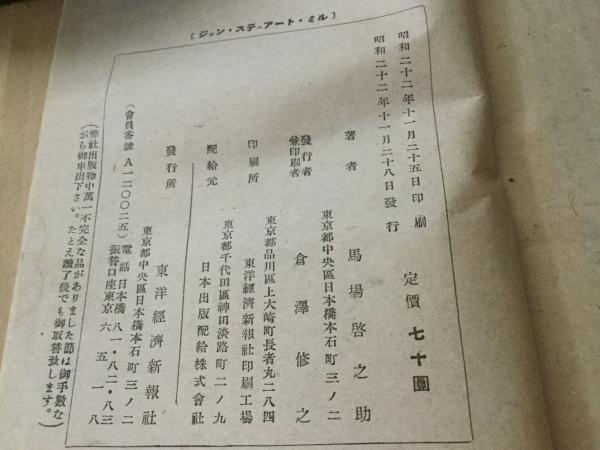 〔ジョン・ステュアート・ミル〕
昭和二十二年十一月二十五日印刷
昭和二十二年十一月二十八日發行
定價 七十圓
著者 馬場啓之助
東京都中央區日本橋本石町三ノ二
發行者
兼印刷者
倉澤修之
東京都品川區上大崎町長者丸二八四
印刷所 東洋經濟新報社印刷工場
東京都千代田區神田淡路町二ノ九
配給元 日本出版配給株式會社
發行所 東洋經濟新報社
東京都中央區日本橋本石町三ノ二
(會員番號 A一二〇〇二五)
電話日本橋 八一・八二・八三
振替口座東京 六五一八
(弊社出版物中萬一不完全な品がありました節は御手數な
がら御申出下さい。たとえ讀了後でも御取替致します。)